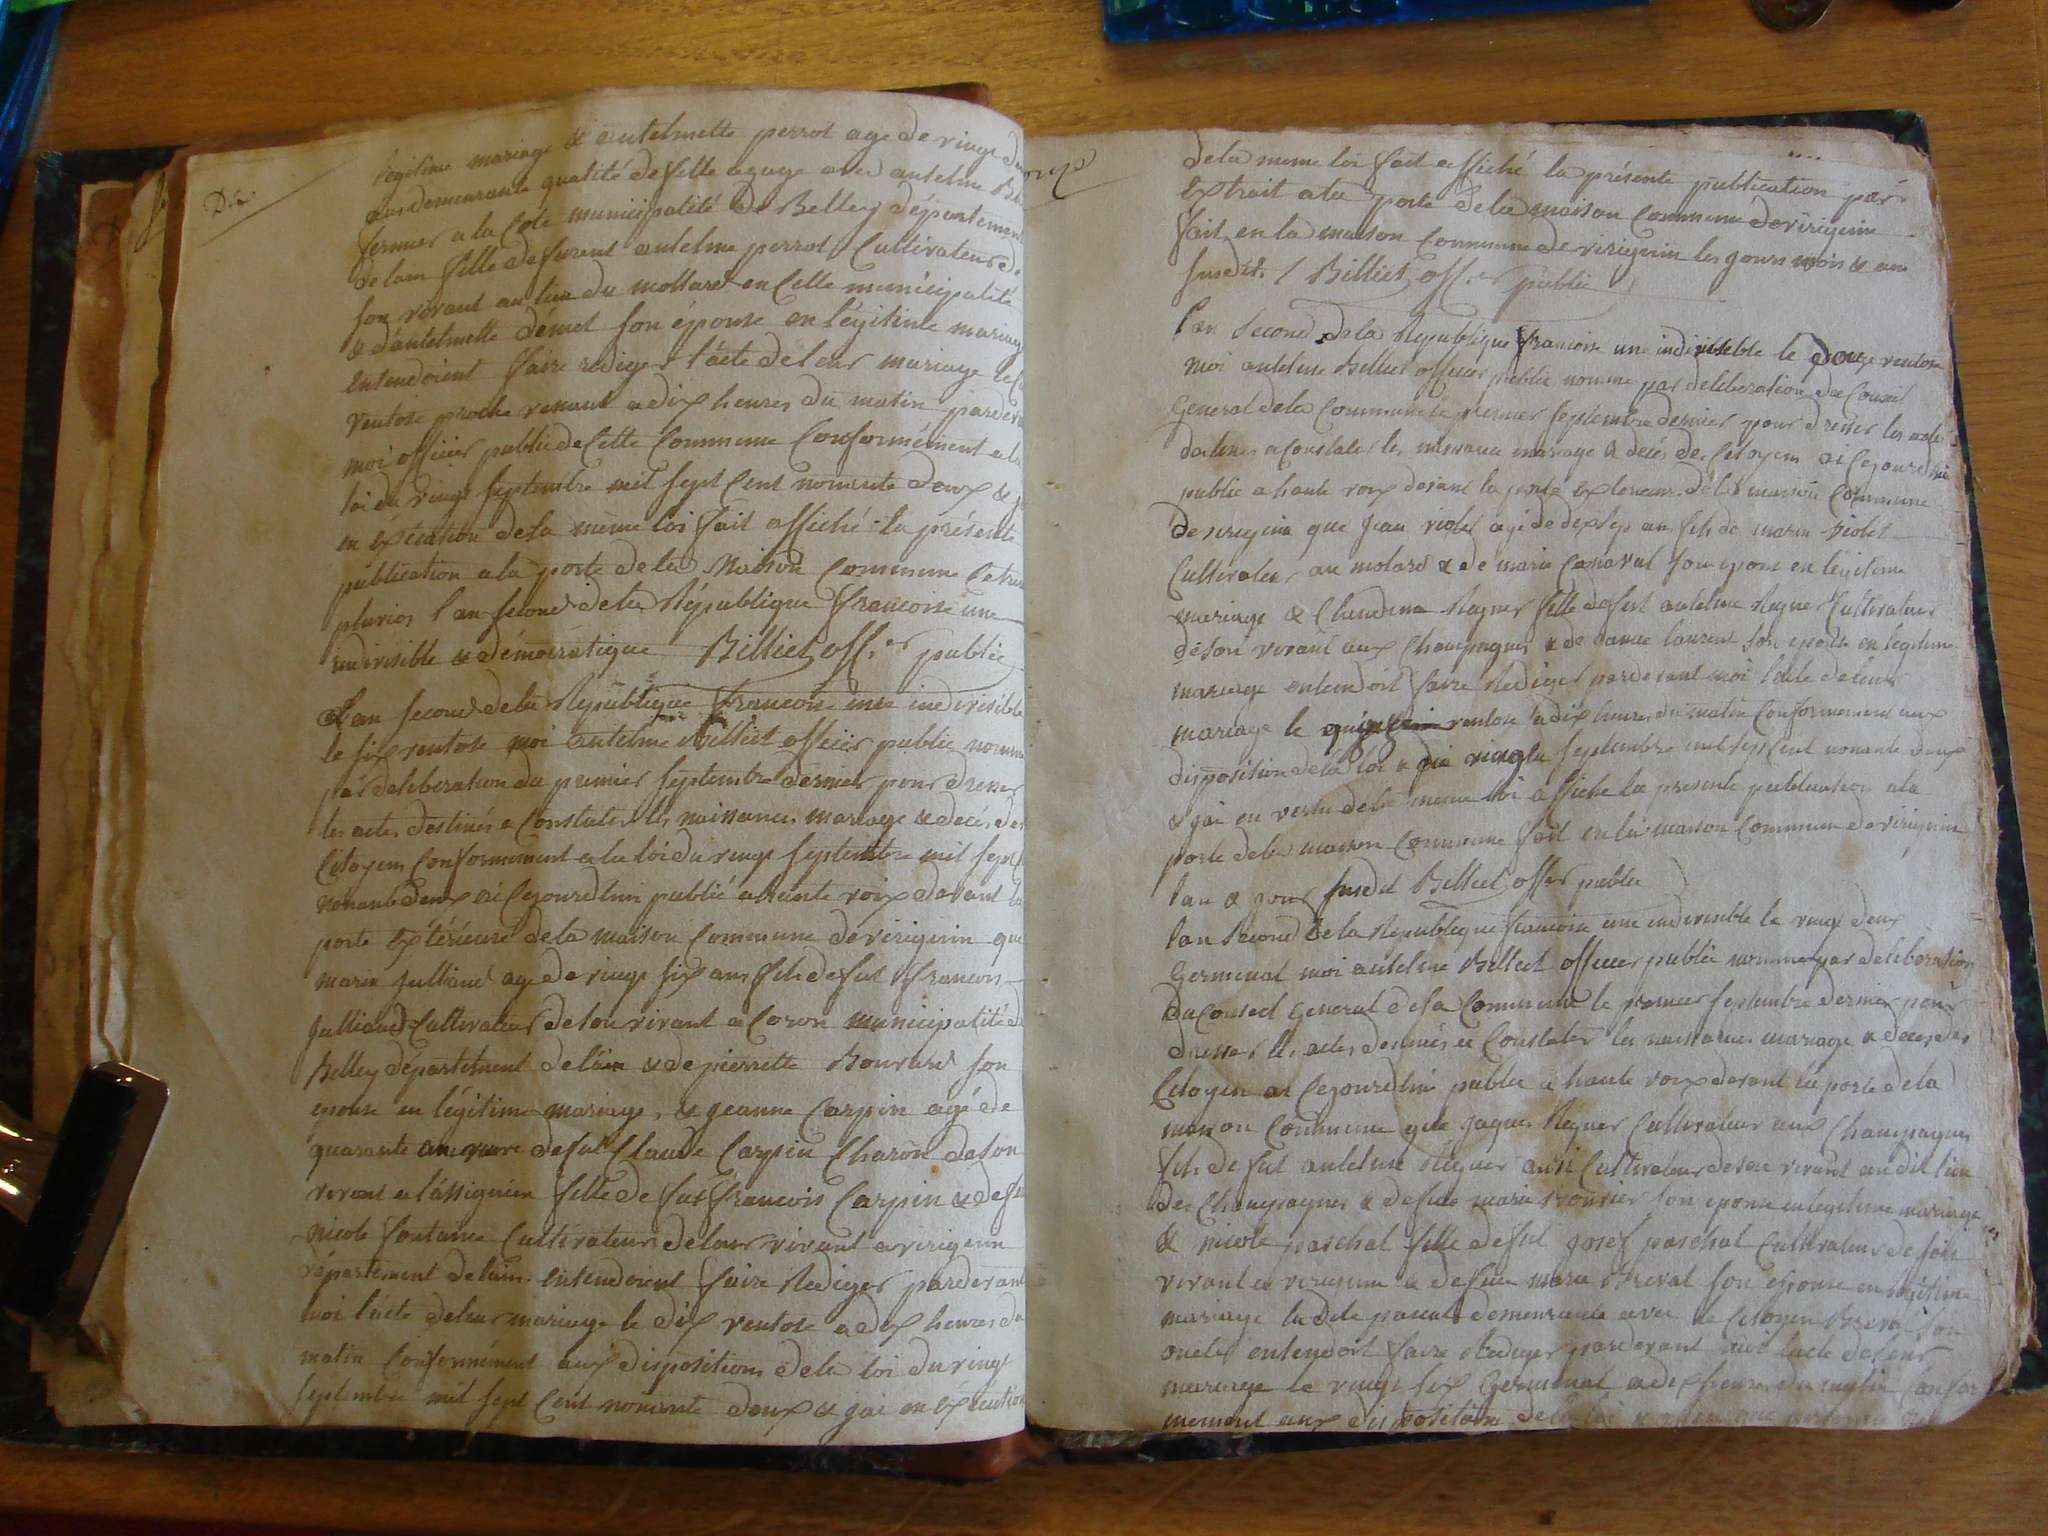 Dix
legitime mariage & antelmette perrot age de vingt
ans demeurante qualité de fille agage avec antelme
fermier a la Cote municipalité de Belley département
de lain fille de furent antelme perrot Cultivateur de
son vivant au lieu du mollard en Celle municipalité
& dantelmette son épouse en légitime mariage
entendoient faire rediger l'acte de leur mariage le
ventose proche venant a dix heures du matin pardevant
moi officier public de Cette Commune Conformément a la
loi du vingt septembre mil sept Cent nonante deux &
en éxécution de la même loi fait affiché la présente
publication a la porte de la Maison Commune le
pluvios l'an second de la République francoise une
indivisible & démocratique Billiet off.er public
L'an second de la République francoise une indivisible
le six ventose moi antelme Billiet officier public nommé
par deliberation du premier septembre dernier pour dresser
les actes destinés a Constater les naissances mariage & decés des
Citoyens Conformement a la loi du vingt septembre mil sept
nonante deux ai Cejourdhui publié a haute voix devant la
porte extérieure de la maison Commune de virignin que
marin Julliand age de vingt six ans fils de fut francois
Julliand Cultivateur de son vivant a Coron municipalité de
Belley département de lain & de pierrette Bouvard son
epouse en légitime mariage, & jeanne Carpin agé de
quarante ans veuve de fut Claude Carpin Charon de son
vivant a lassignieu fille de fut francois Carpin & de fut
nicole fontaine Cultivateurs de leur vivant a virignin
département de lain entendoient faire Rediger pardevant
moi l'acte de leur mariage le dix ventose a dix heures du
matin Conformément aux dispositions de la loi du vingt
septembre mil sept Cent nonante deux & jai en éxécution
onze
de la meme loi fait affiché la présente publication par
Extrait a la porte de la maison Commune de virignin
fait en la maison Commune de virignin les jours mois & an
susdit. / Billiet off.er public
l'an second de la République francoise une indivisible le Douze ventose
moi antelme Billiet officier public nommé par deliberation du Conseil
General de la Commune le premier septembre dernier pour dresser les actes
destines a Constater les naissance mariage & decés des Citoyens ai Cejourdhui
publié a haute voix devant la porte exterieure de la maison Commune
de virignin que jean violet agé de dix sept an fils de marin violet
Cultivateur au molard & de marie Canaval son epouse en legitime
mariage & Claudine Reyner fille de fut antelme Reyner Cultivateur
de son vivant aux Champagnes & de laurent son epouse en legitime
mariage entendoit faire Rediger pardevant moi lacte de leur
mariage le ventose a dix heures du matin Conformement aux
disposition de la loi du vingt septembre mil sept Cent nonante deux
& jai en vertu de la meme loi affiché la presente publication a la
porte de la maison Commune fait en la maison Commune de virignin
l'an & jour susdit Billiet off.er public
l'an second de la République francoise une indivisible le vingt deux
Germinal moi antelme Billiet officier public nommé par deliberation
du Conseil General de la Commune le premier septembre dernier pour
dresser les actes destinés a Constater les naissances mariage & deces des
Citoyen ai Cejourdhui publié a haute voix devant la porte de la
maison Commune que jaques Reyner Cultivateur aux Champagnes
fils de fut antelme Reyner aussi Cultivateur de son vivant au dit lieu
des Champagnes & de fue marie son epouse en legitime mariage
& nicole paschal fille de fut josef paschal Cultivateur de son
vivant a virignin & de fue marie Breval son epouse en légitime
mariage la dite pascal demeurante avec le Citoyen Breval son
oncle entendoit faire Rediger pardevant moi lacte de leur
mariage le vingt six Germinal a dix heures du matin Confor
mement aux dispositions de la loi &